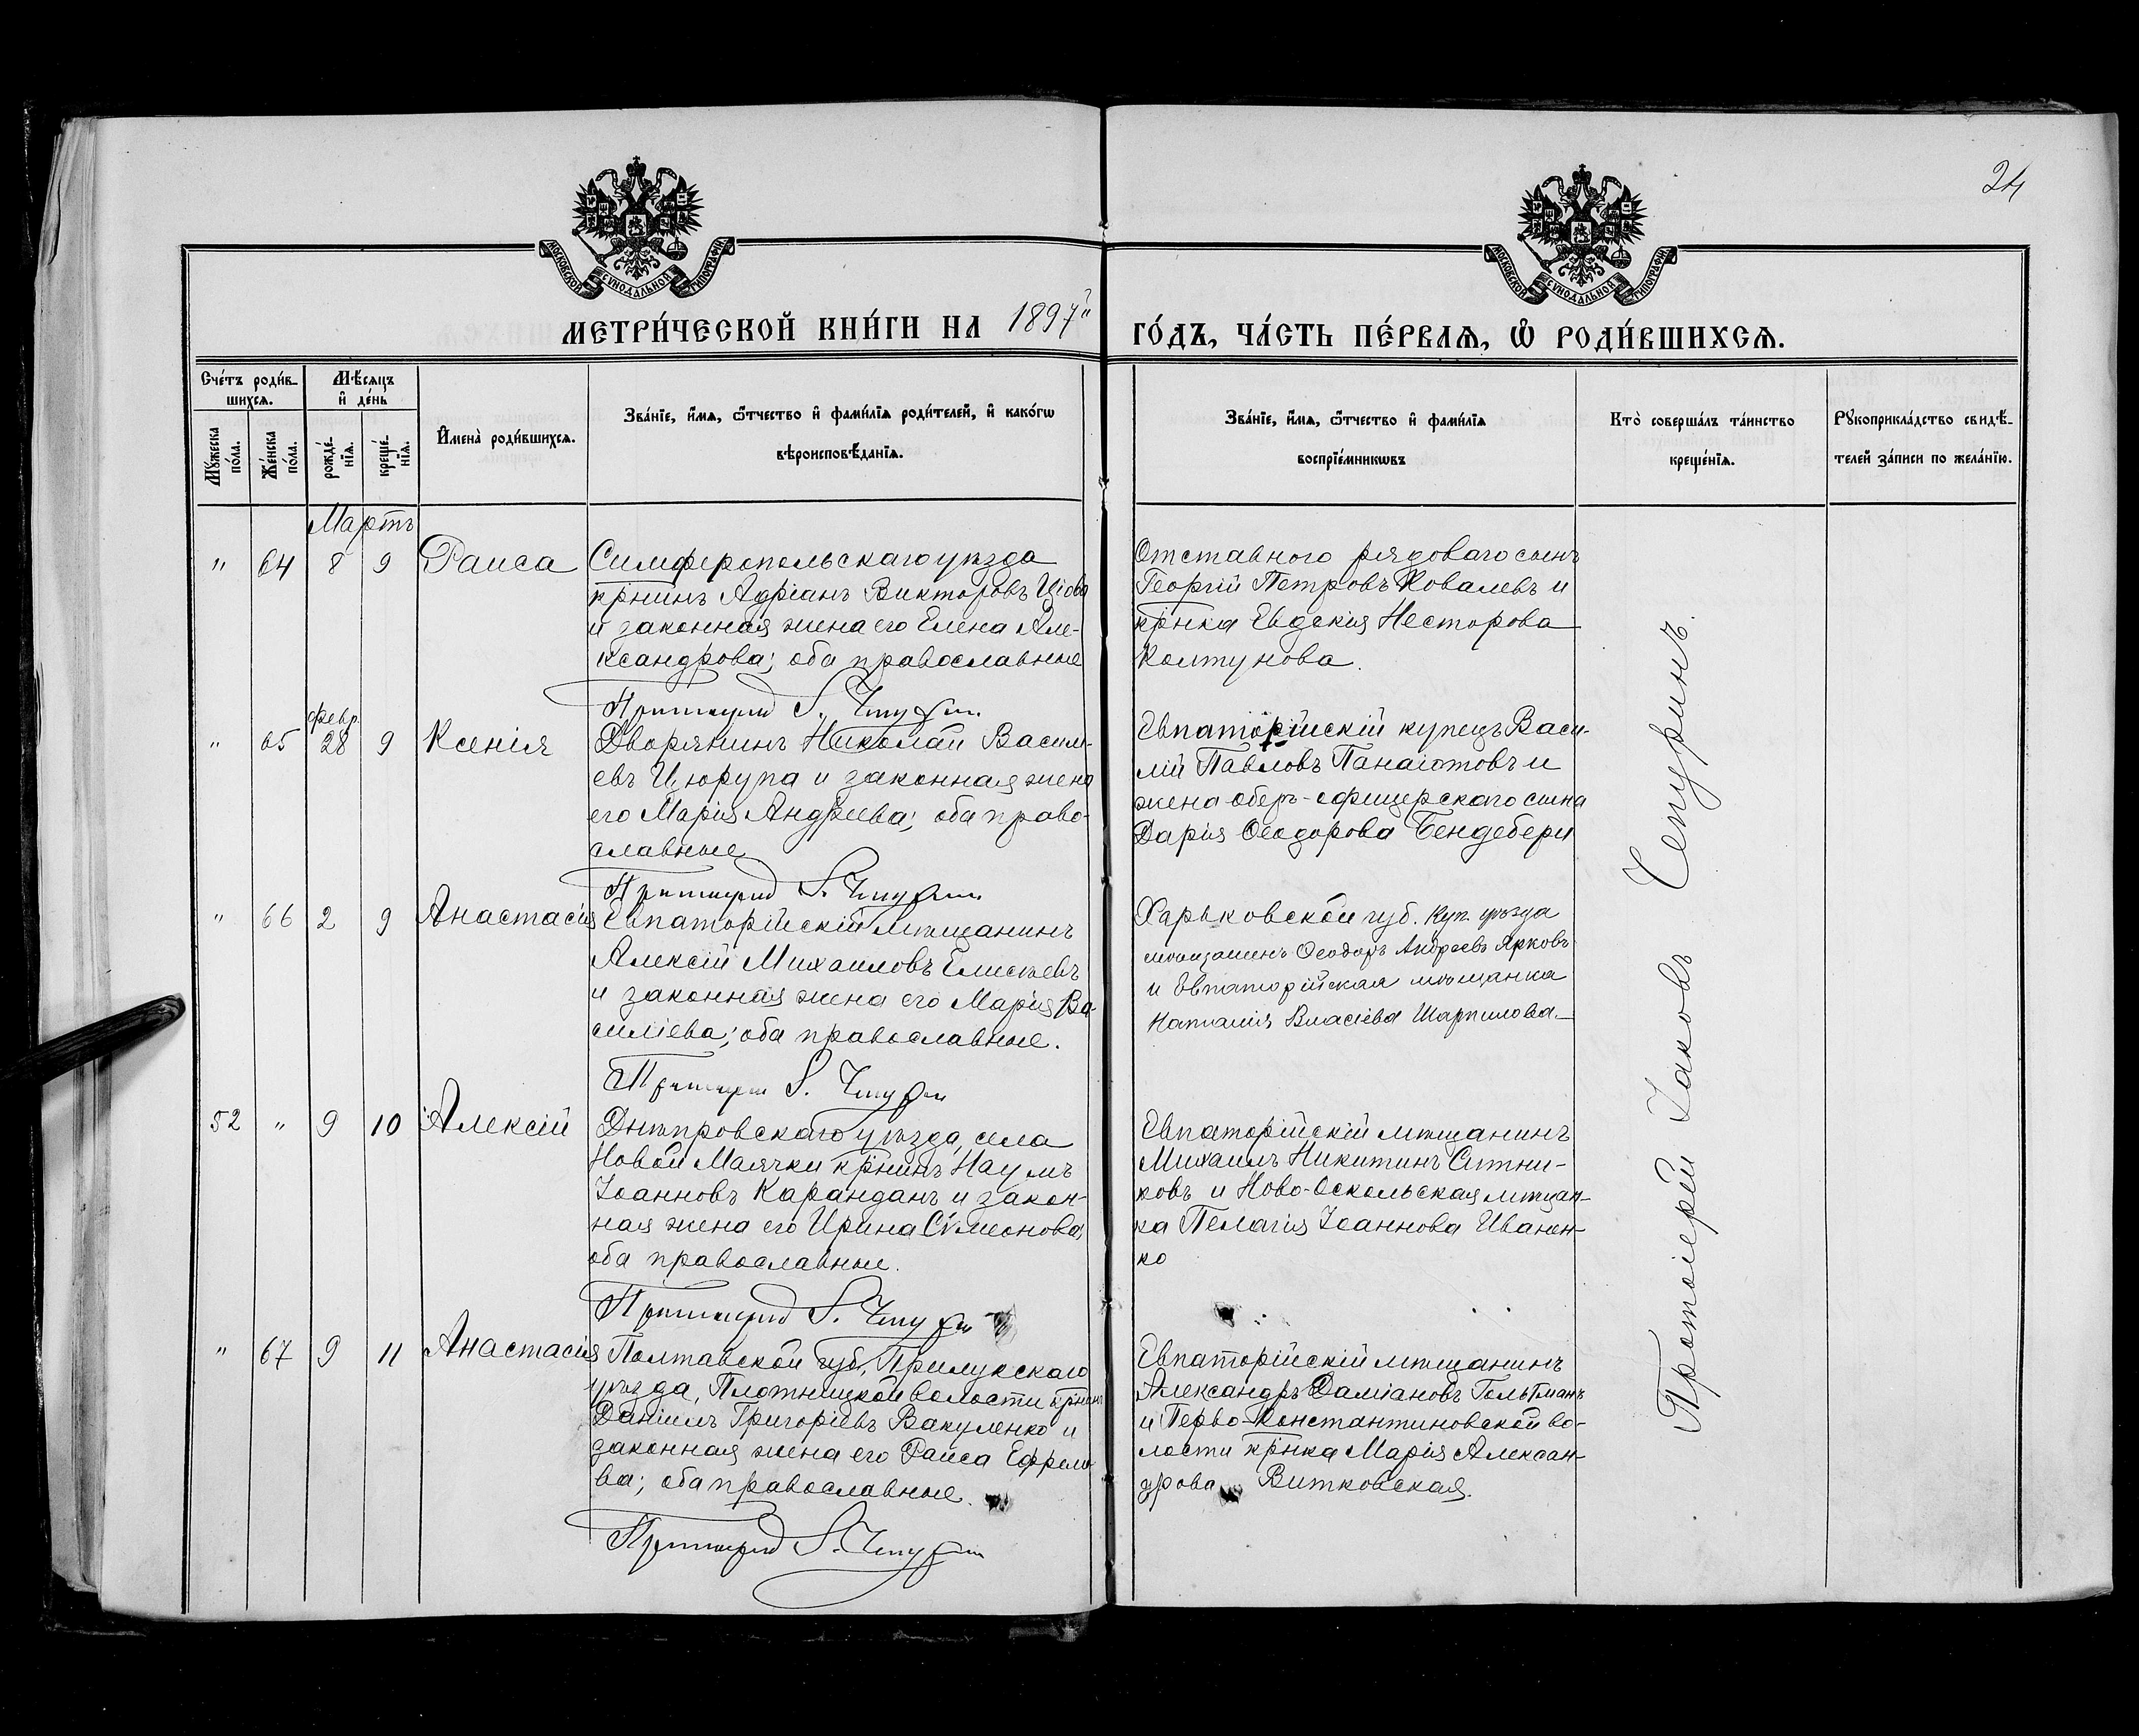 24
МОСКОВСКОЙ СѴНОДАЛЬНОЙ ТИПОГРАФІИ
МОСКОВСКОЙ СѴНОДАЛЬНОЙ ТИПОГРАФІИ
МЕТРИ́ЧЕСКОЙ КНИ́ГИ НА 1897й ГО́ДЪ, ЧА́СТЬ ПЕ́РВАѦ, Ѿ РОДИ́ВШИХСѦ.
Сче́тъ роди́в-
шихсѧ.
Мѣ́сѧцъ
и҆ де́нь
Мꙋ́жеска
по́ла.
Же́нска
по́ла.
рожде́-
нїѧ.
креще́-
нїѧ.
И҆мена̀ роди́вшихсѧ.
Зва́нїе, и҆́мѧ, ѻ҆́тчество и҆ фами́лїѧ роди́телей, и҆ како́гѡ
вѣроисповѣ́данїѧ.
Зва́нїе, и҆́мѧ, ѻ҆́тчество и҆ фами́лїѧ
воспрїе́мникѡвъ
Кто̀ соверша́лъ та́инство
креще́нїѧ.
Рꙋкоприкла́дство свидѣ́-
телей за́писи по жела́нїю.
Мартъ
" 64 8 9 Раиса
Симферопольскаго уѣзда
крнинъ Адріанъ Викторовъ
и законная жена его Елена Але-
ксандрова; оба православные
Отставного рядоваго сынъ
Георгій Петровъ Ковалевъ и
крнка Евдокія Несторова
Колтунова.
Протоіерей І. Чепуринъ
февр.
" 65 28 9 Ксенія
Дворянинъ Николай Василі-
евъ Цюрупа и законная жена
его Марія Андреева; оба право-
славные
Евпаторійскій купецъ Васи-
лій Павловъ Панаіотовъ и
жена оберъ-офицерскаго сына
Дарія Ѳеодорова Бендебери
Протоіерей І. Чепуринъ
" 66 2 9 Анастасія
Евпаторійскій мѣщанинъ
Алексій Михаиловъ Елисѣевъ
и законная жена его Марія Ва-
силіева; оба православные.
Харьковской губ. Куп. уѣзда
мѣщанинъ Ѳеодоръ Андреевъ Ярковъ
и Евпаторійская мѣщанка
Наталія Власіева Шарпилова.
Протоіерей І. Чепуринъ
52 " 9 10 Алексій
Днѣпровскаго уѣзда, села
Новой Маячки крнинъ Наумъ
Іоанновъ Каранданъ и закон-
ная жена его Ирина Сѵмеонова;
оба православные.
Евпаторійскій мѣщанинъ
Михаилъ Никитинъ Ситни-
ковъ и Ново-Оскольская мѣщан-
ка Пелагія Іоаннова Иванен-
ко
Протоіерей І. Чепуринъ
" 67 9 11 Анастасія
Полтавской губ., Прилукскаго
уѣзда, волости крнинъ
Даніилъ Григоріевъ Вакуленко и
законная жена его Раиса Ефремо-
ва; оба православные.
Евпаторійскій мѣщанинъ
Александръ Даміановъ Гольтманъ
и Перво-Константиновской во-
лости крнка Марія Алексан-
дрова Витковская.
Протоіерей І. Чепуринъ
Протоіерей Іаковъ Чепуринъ.